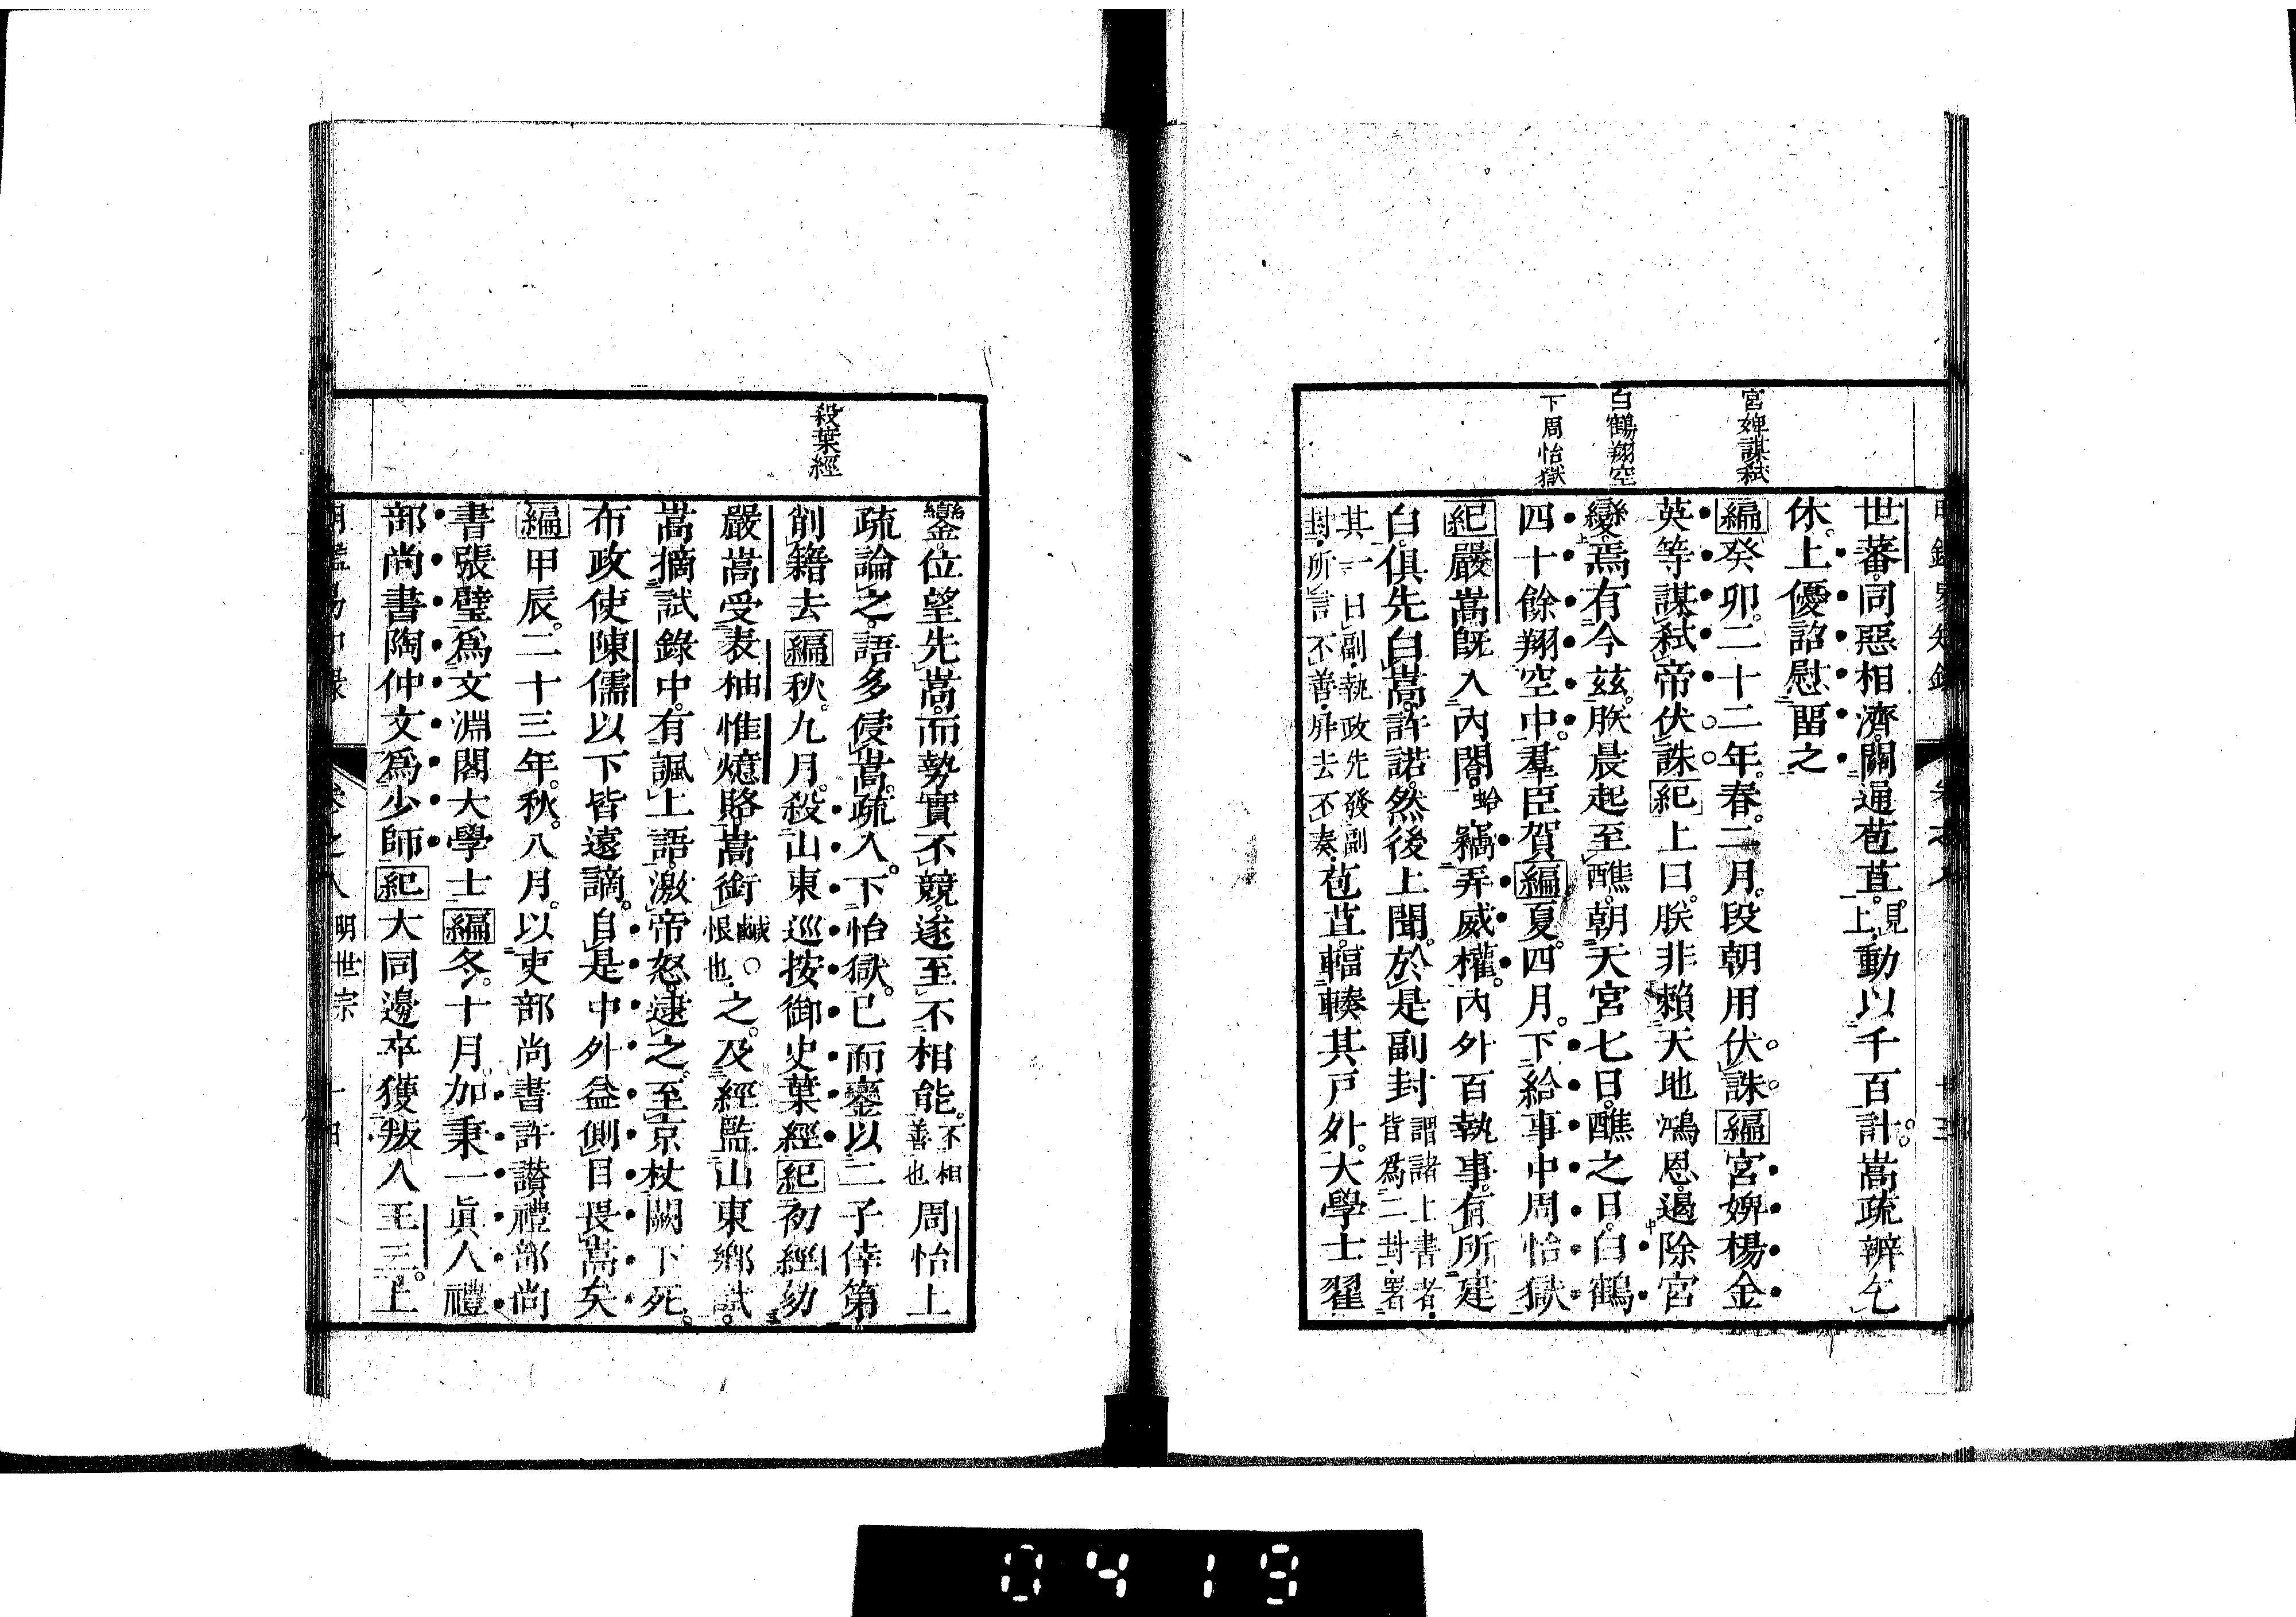 宮婢謀弒
白鶴翔空
下周怡獄
世蕃。同惡相濟。關通苞苴。見上動以千百計。嵩疏辨乞
休。上優詔慰留之
編癸卯。二十二年。春。二月。段朝用伏誅編宮婢楊金
英等謀弒帝伏誅紀上曰。朕非賴天地鴻恩。遏除宮
變。焉有今茲。朕晨起至醮。朝天宮七日。醮之日。白鶴
四十餘翔空中。羣臣賀編夏。四月。下給事中周怡獄
紀嚴嵩既入內閣。竊弄威權。內外百執事。有所建
白。俱先白嵩。許諾。然後上聞。於是副封謂諸上書者。皆爲二封。署
其一曰副。執政先發副封。所言不善。屏去不奏。苞苴。輻輳其戶外。大學士翟
殺葉經
鑾。位望先嵩。而勢實不競。遂至不相能。不相善也周怡上
疏論之。語多侵嵩。疏入。下怡獄。已而鑾以二子倖第
削籍去編秋。九月。殺山東巡按御史葉經紀初經劾
嚴嵩受表柚惟燱賂。嵩銜鹹○恨也之。及經監山東鄉試。
嵩摘試錄中。有諷上語。激帝怒。逮之。至京杖闕下死。
布政使陳儒以下皆遠謫。自是中外益側目畏嵩矣
編甲辰。二十三年。秋。八月。以吏部尚書許讃禮部尚
書張璧爲文淵閣大學士編冬。十月。加秉一眞人禮
部尚書陶仲文爲少師紀大同邊卒獲叛人王三。上
卷之八 明世宗 十四
0419